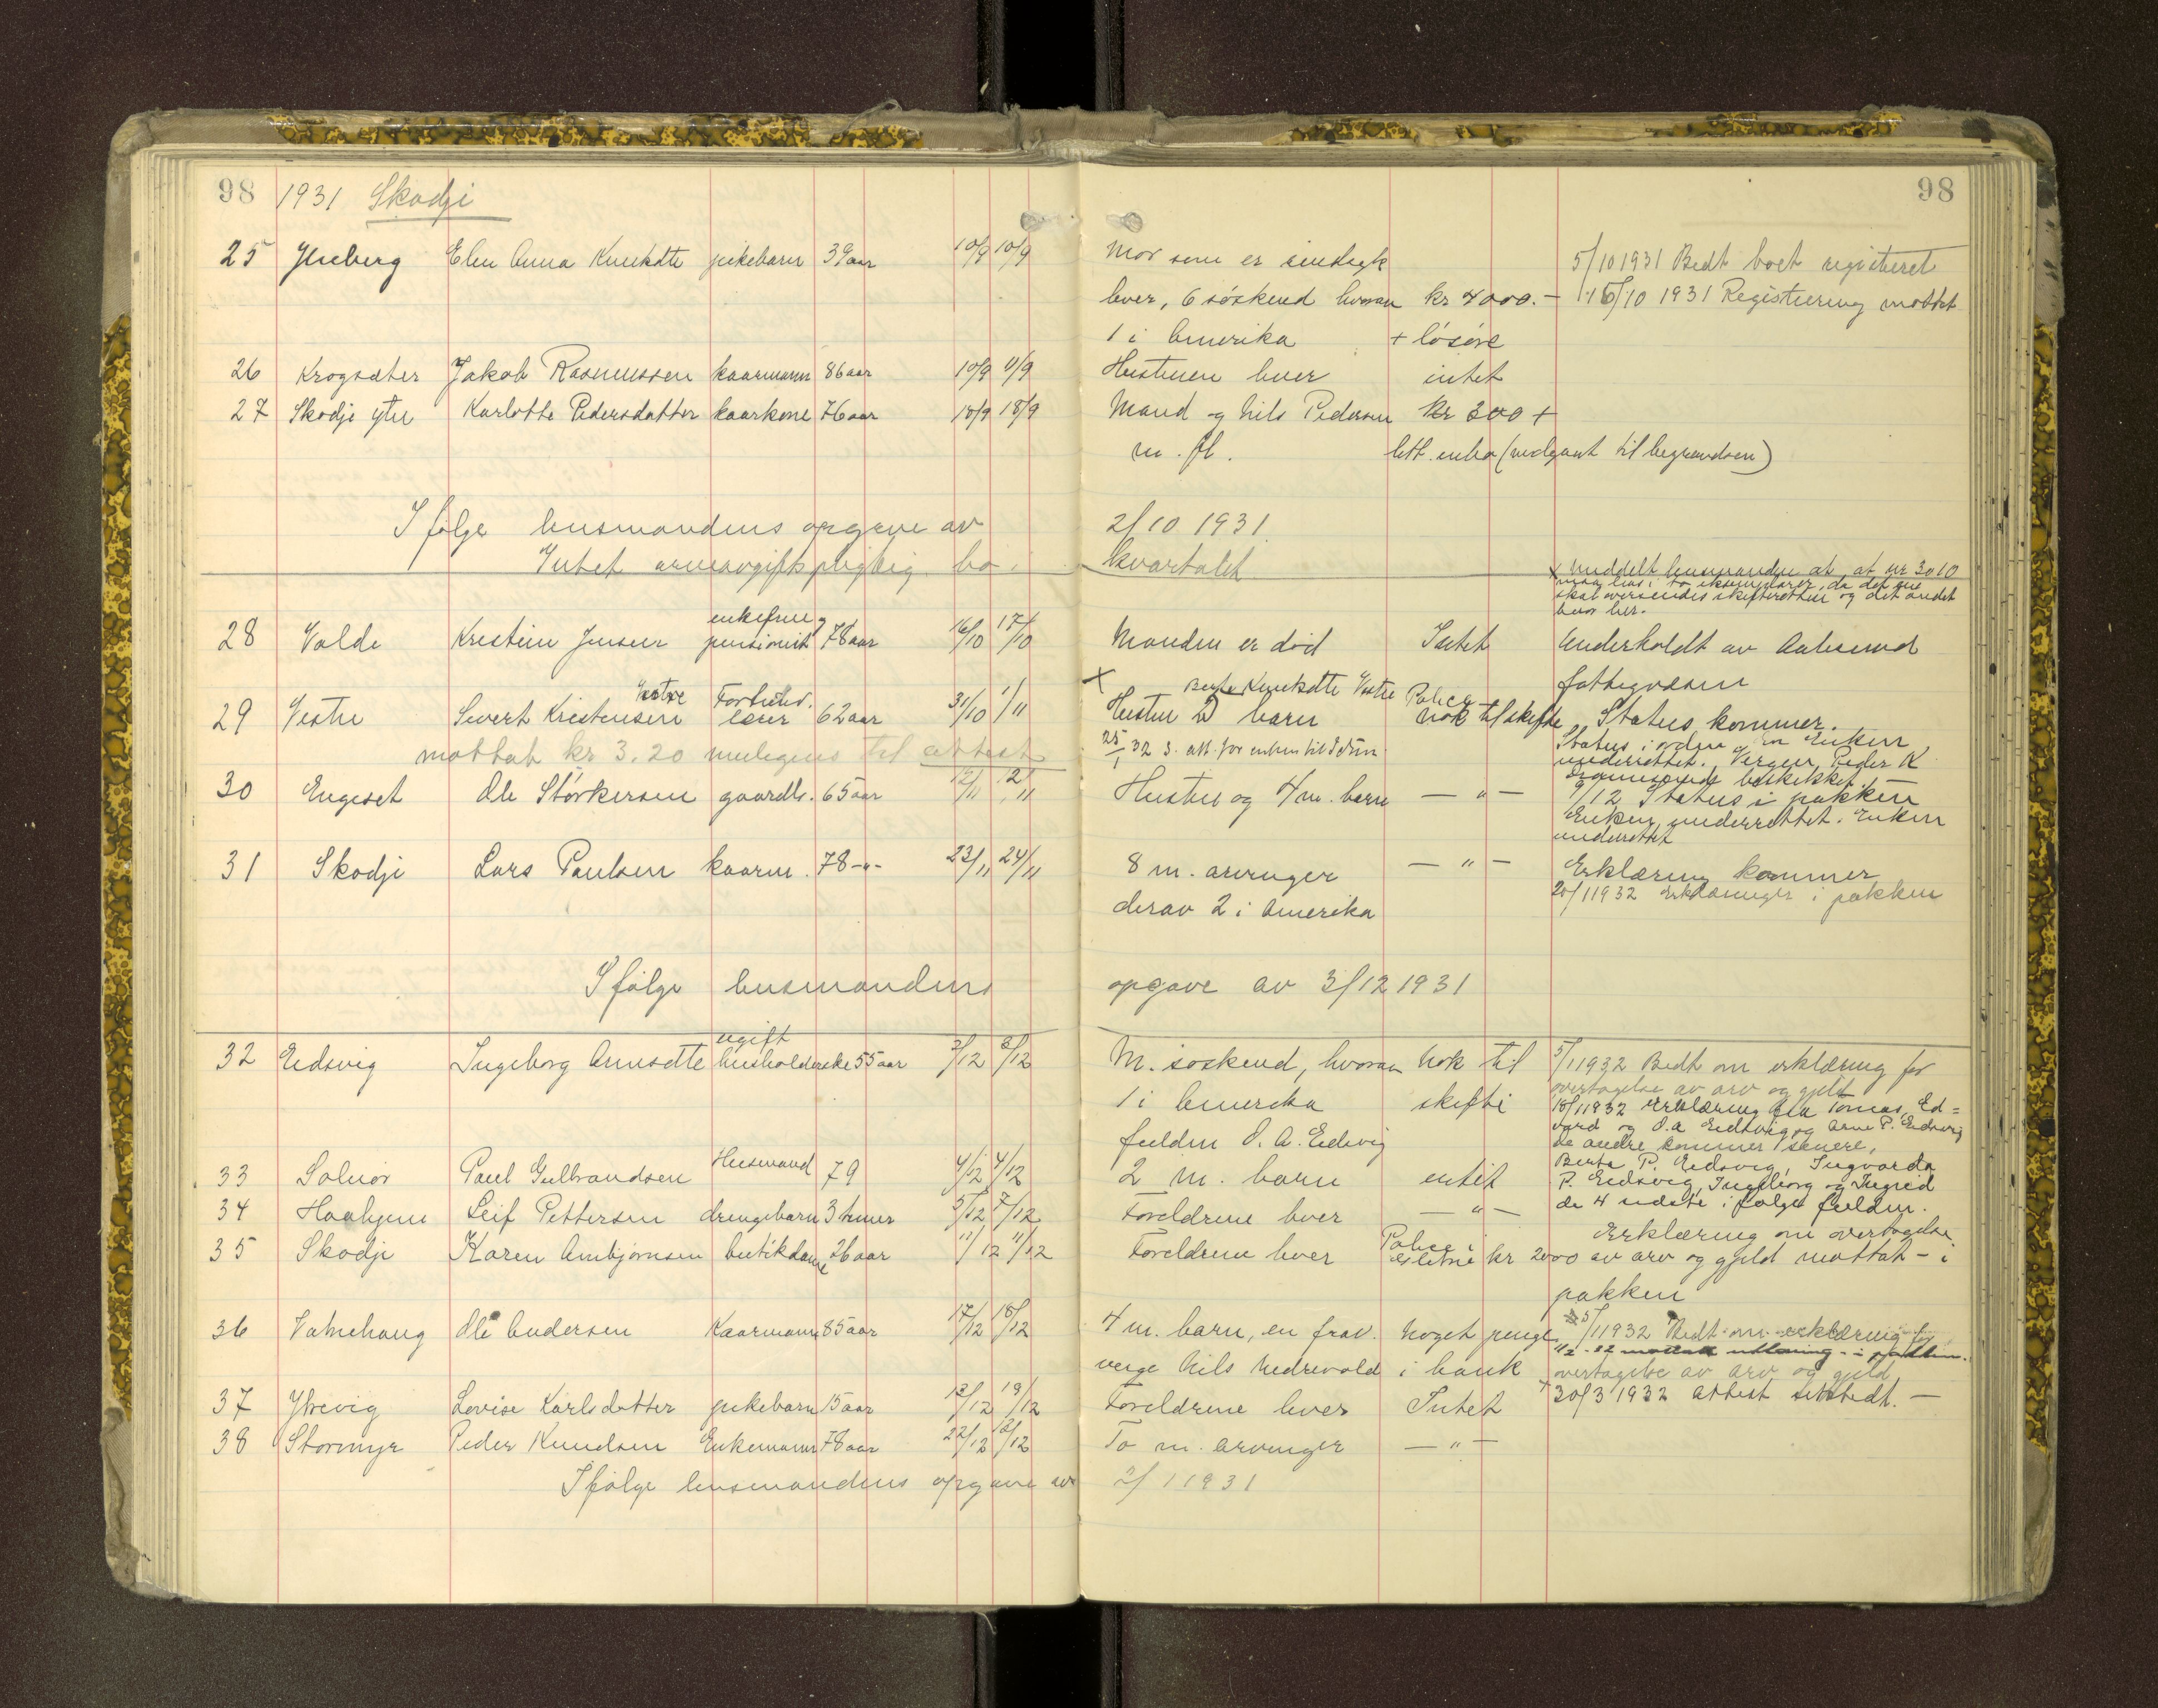 98 1931 Skodji 98
25 Elen Anna Knutsdtr pikebarn 39 aar 10/9 10/9 Mor som er sindsyk 5/10 1931 Bedt boet registreret
lever, 6 søskend hvorav kr 4000.- 16/10 1931 Registrering mottat
1 i Amerika + løsøre
26 Krogsæter Jakob Rasmussen kaarmann 86 aar 10/9 11/9 Hustruen lever intet
27 Skodje ytre Karlotte Pedersdatter kaarkone 76 aar 18/9 18/9 Mand og Nils Pedersen kr 300 +
m. fl. litt. innbo (medgaat til begravelsen)
Ifølge lensmandens opgave av 2/10 1931.
Intet arveavgiftspligtig bo i kvartalet
x Meddelt lensmanden at at nr 30 10
maa lev. i to eksemplarer, da det ene
skal oversendes skifteretten og det andet
bero her.
28 Valde Kristin Jensen enkefrue og pensionist 78 aar 16/10 17/10 Manden er død Intet Underholdt av Aalesund
fattigvæsen
29 Vestre Sivert Kristensen Vestre Forhenv. lærer 62 aar 31/10 1/11 x Berte Knutsdtr Vestre
Hustru 2 barn Police nok til skifte Status kommer.
mottat kr 3.20 muligens til attest 25/1 32 s. att. for enken til Idun
Status i orden og en Enken
underrettet. Vergen Peder K
beskikket.
30 Engeset Ole Størkersen gaardbr. 65 aar 12/11 12/11 Hustru og 4 m. barn — " — 9/12 Status i pakken
Enken underrettet. Enken
underrettet
31 Skodje Lars Paulsen kaarm. 78 -"- 23/11 24/11 8 m. arvinger — " — Erklæring kommer
derav 2 i Amerika 20/1 1932 Erklæringer i pakken
Ifølge lensmandens opgave av 3/12 1931
32 Eidsvig Ingeborg Arnsdtr ugift husholderske 55 aar 3/12 3/12 M. søskend, hvorav nok til 5/1 1932 Bedt om erklæring for
1 i Amerika skifte overtagelse av arv og gjeld
fuldm O. A. Eidsvig 18/1 1932 erklæring fra Tomas, Ed=
vard og O.A Eidsvig og Arne P. Eidsvig
de andre kommer senere,
33 Solnør Paul Gulbrandsen Husmand 79 4/12 4/12 2 m. barn intet Berte P. Eidsvig, Ingvarda
P. Eidsvig, Ingeborg og Ingrid
34 Haahjem Leif Pettersen drengebarn 3 timer 5/12 7/12 Foreldrene lever — " — de 4 sidste ifølge fuldm.
35 Skodje Karen Ambjørnsen butikdame 26 aar 11/12 11/12 Foreldrene lever Police i kr 2000 Erklæring om overtagelse
av arv og gjeld mottat - i
pakken
36 Vatnehaug Ole Andersen Kaarmann 85 aar 17/12 18/12 4 m. barn, en frav. Noget penge 5/1 1932 Bedt om erklæring for
verge Nils Nedrevold i bank overtagelse av arv og gjeld
37 Ytrevig Lovise Karlsdatter pikebarn 15 aar 13/12 19/12 Foreldrene lever Intet x 30/3 1932 attest utstedt. —
38 Stormyr Peder Knudsen Enkemann 78 aar 22/12 To m. arvinger — " —
Ifølge lensmandens opgave av 2/1 1931